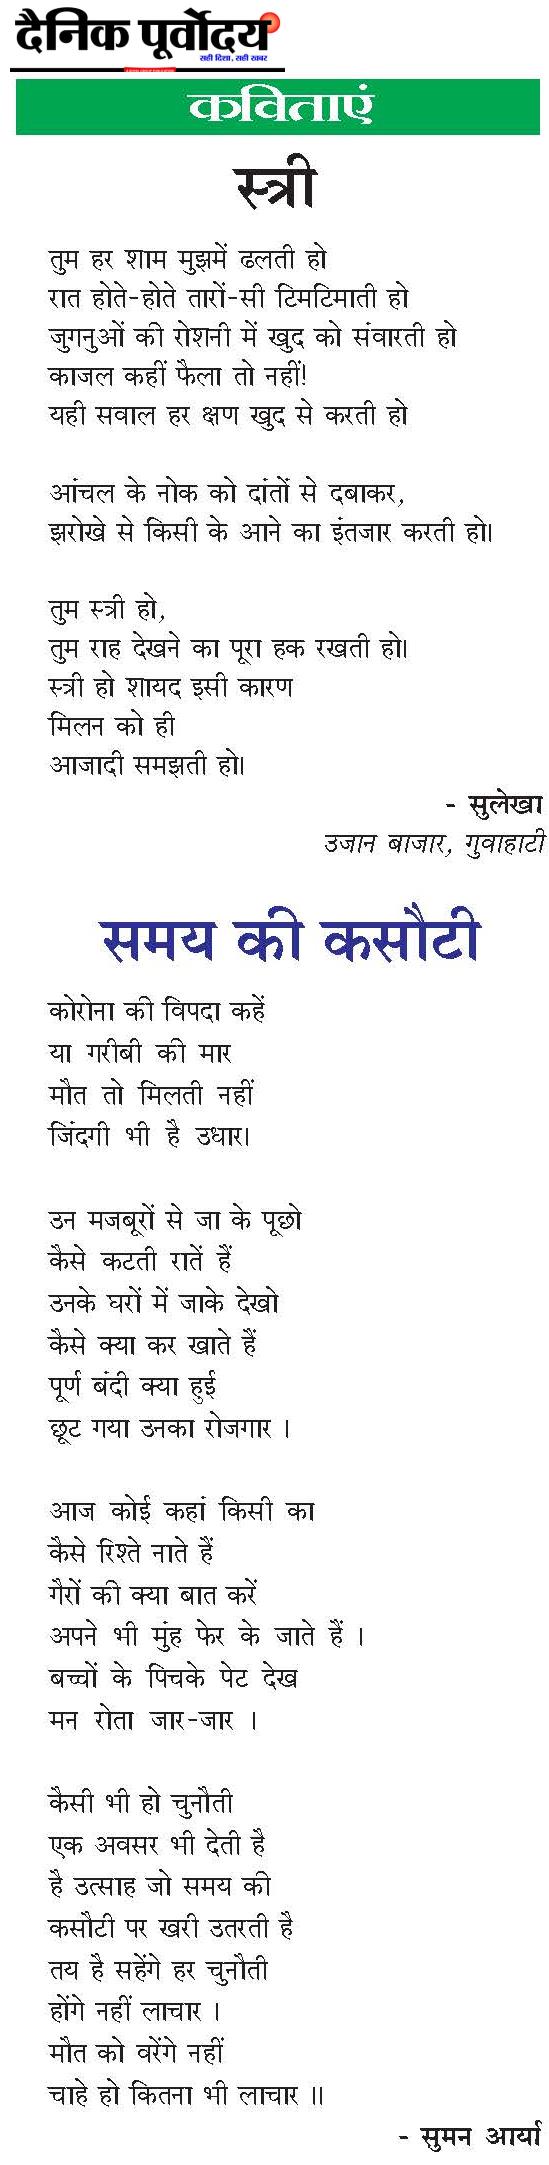 दैनिक पूर्वोदय
सही दिशा, सही खबर
कविताएं
स्त्री
तुम हर शाम मुझमें ढलती हो
रात होते-होते तारों-सी टिमटिमाती हो
जुगनुओं की रोशनी में खुद को संवारती हो
काजल कहीं फैला तो नहीं!
यही सवाल हर क्षण खुद से करती हो
आंचल के नोक को दांतों से दबाकर,
झरोखे से किसी के आने का इंतजार करती हो।
तुम स्त्री हो,
तुम राह देखने का पूरा हक रखती हो।
स्त्री हो शायद इसी कारण
मिलन को ही
आजादी समझती हो।
- सुलेखा
उजान बाजार, गुवाहाटी
समय की कसौटी
कोरोना की विपदा कहें
या गरीबी की मार
मौत तो मिलती नहीं
जिंदगी भी है उधार।
उन मजबूरों से जा के पूछो
कैसे कटती रातें हैं
उनके घरों में जाके देखो
कैसे क्या कर खाते हैं
पूर्ण बंदी क्या हुई
छूट गया उनका रोजगार ।
आज कोई कहां किसी का
कैसे रिश्ते नाते हैं
गैरों की क्या बात करें
अपने भी मुंह फेर के जाते हैं ।
बच्चों के पिचके पेट देख
मन रोता जार-जार ।
कैसी भी हो चुनौती
एक अवसर भी देती है
है उत्साह जो समय की
कसौटी पर खरी उतरती है
तय है सहेंगे हर चुनौती
होंगे नहीं लाचार ।
मौत को वरेंगे नहीं
चाहे हो कितना भी लाचार ॥
- सुमन आर्या